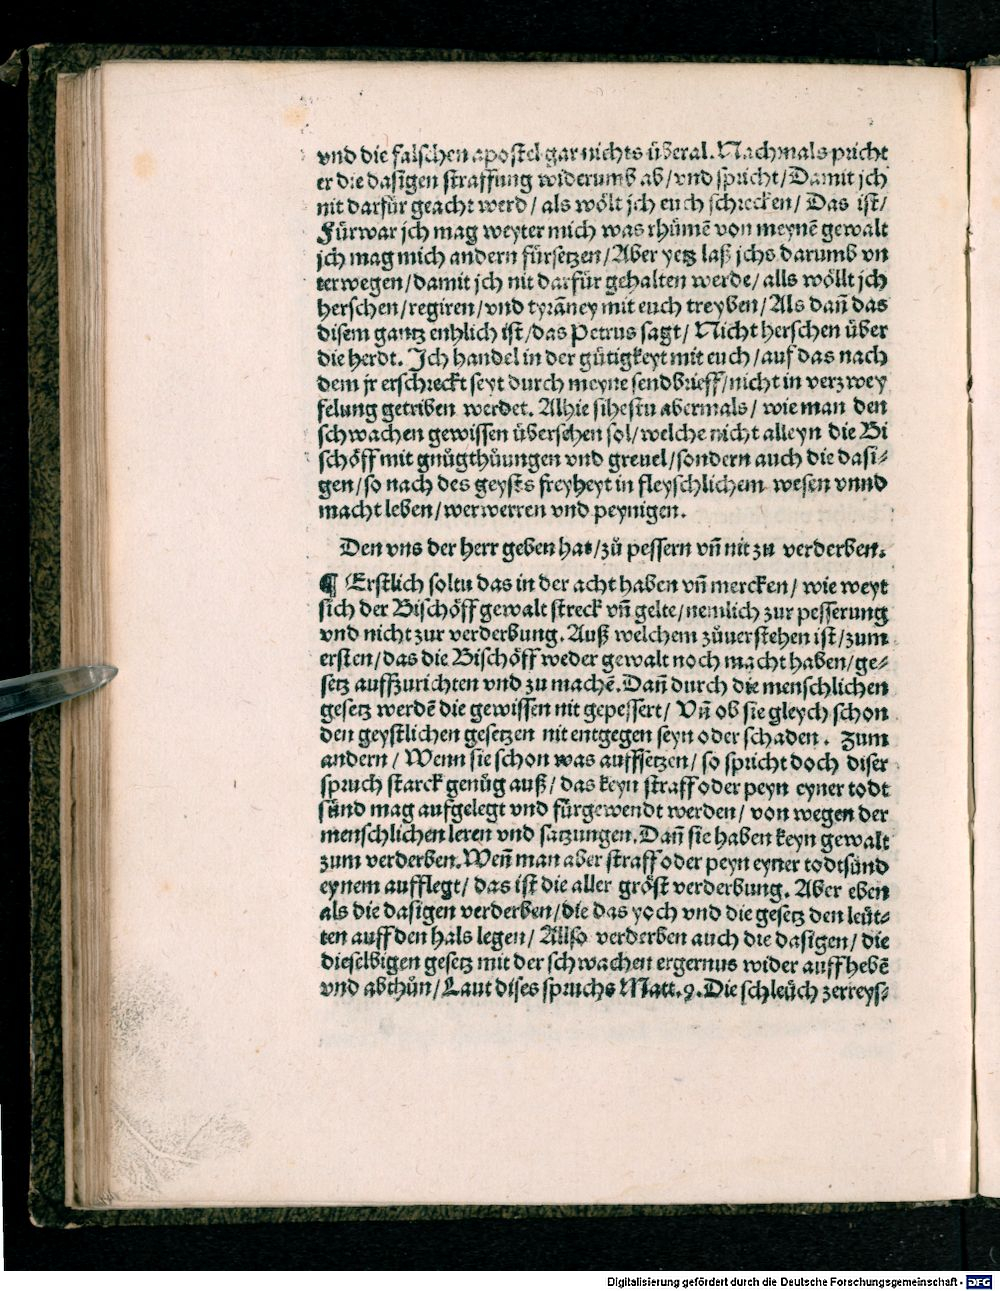 vnd die falschen apostel gar nichts überal. Nachmals pricht
er die dasigen straffung widerumb ab/vnd spricht/Damit jch
nit darfür geacht werd/ als wölt jch euch schrecken/ Das ist/
Fürwar jch mag weyter mich was rhůmē von meynē gewalt
jch mag mich andern fürsetzen/Aber yetz laß jchs darumb vn
terwegen/damit jch nit darfür gehalten werde/ alls wöllt jch
herschen/regiren/vnd tyrāney mit euch treyben/Als dañ das
disem gantz enhlich ist/das Petrus sagt/ Nicht herschen über
die herdt. Ich handel in der gütigkeyt mit euch/auf das nach
dem jr erschreckt seyt durch meyne sendbrieff/nicht in verzwey
felung getriben werdet. Alhie sihestu abermals/ wie man den
schwachen gewissen übersehen sol/welche nicht alleyn die Bi
schöff mit gnůgthůungen vnd grevel/sondern auch die dasi-
gen/so nach des geysts freyheyt in fleyschlichem wesen vnnd
macht leben/werwerren vnd peynigen.
Den vns der herr geben hat/zů pessern vñ nit zu verderben.
¶ Erstlich soltu das in der acht haben vñ mercken/ wie weyt
sich der Bischöff gewalt streck vñ gelte/nemlich zur pesserung
vnd nicht zur verderbung. Auß welchem zůuerstehen ist/zum
ersten/das die Bischöff weder gewalt noch macht haben/ge-
setz auffzurichten vnd zu machē. Dañ durch die menschlichen
gesetz werdē die gewissen nit gepessert/ Vñ ob sie gleych schon
den geystlichen gesetzen nit entgegen seyn oder schaden. Zum
andern/ Wenn sie schon was auffsetzen/ so spricht doch diser
spruch starck genůg auß/ das keyn straff oder peyn eyner todt
sünd mag aufgelegt vnd fürgewendt werden/ von wegen der
menschlichen leren vnd satzungen. Dañ sie haben keyn gewalt
zum verderben. Weñ man aber straff oder peyn eyner todtsünd
eynem aufflegt/ das ist die aller gröst verderbung. Aber eben
als die dasigen verderben/die das yoch vnd die gesetz den leüt-
ten auff den hals legen/ Allso verderben auch die dasigen/ die
dieselbigen gesetz mit der schwachen ergernus wider auffhebē
vnd abthůn/Laut dises spruchs Matt.9. Die schleüch zerreys-
Digitalisierung gefördert durch die Deutsche Forschungsgemeinschaft - DFG